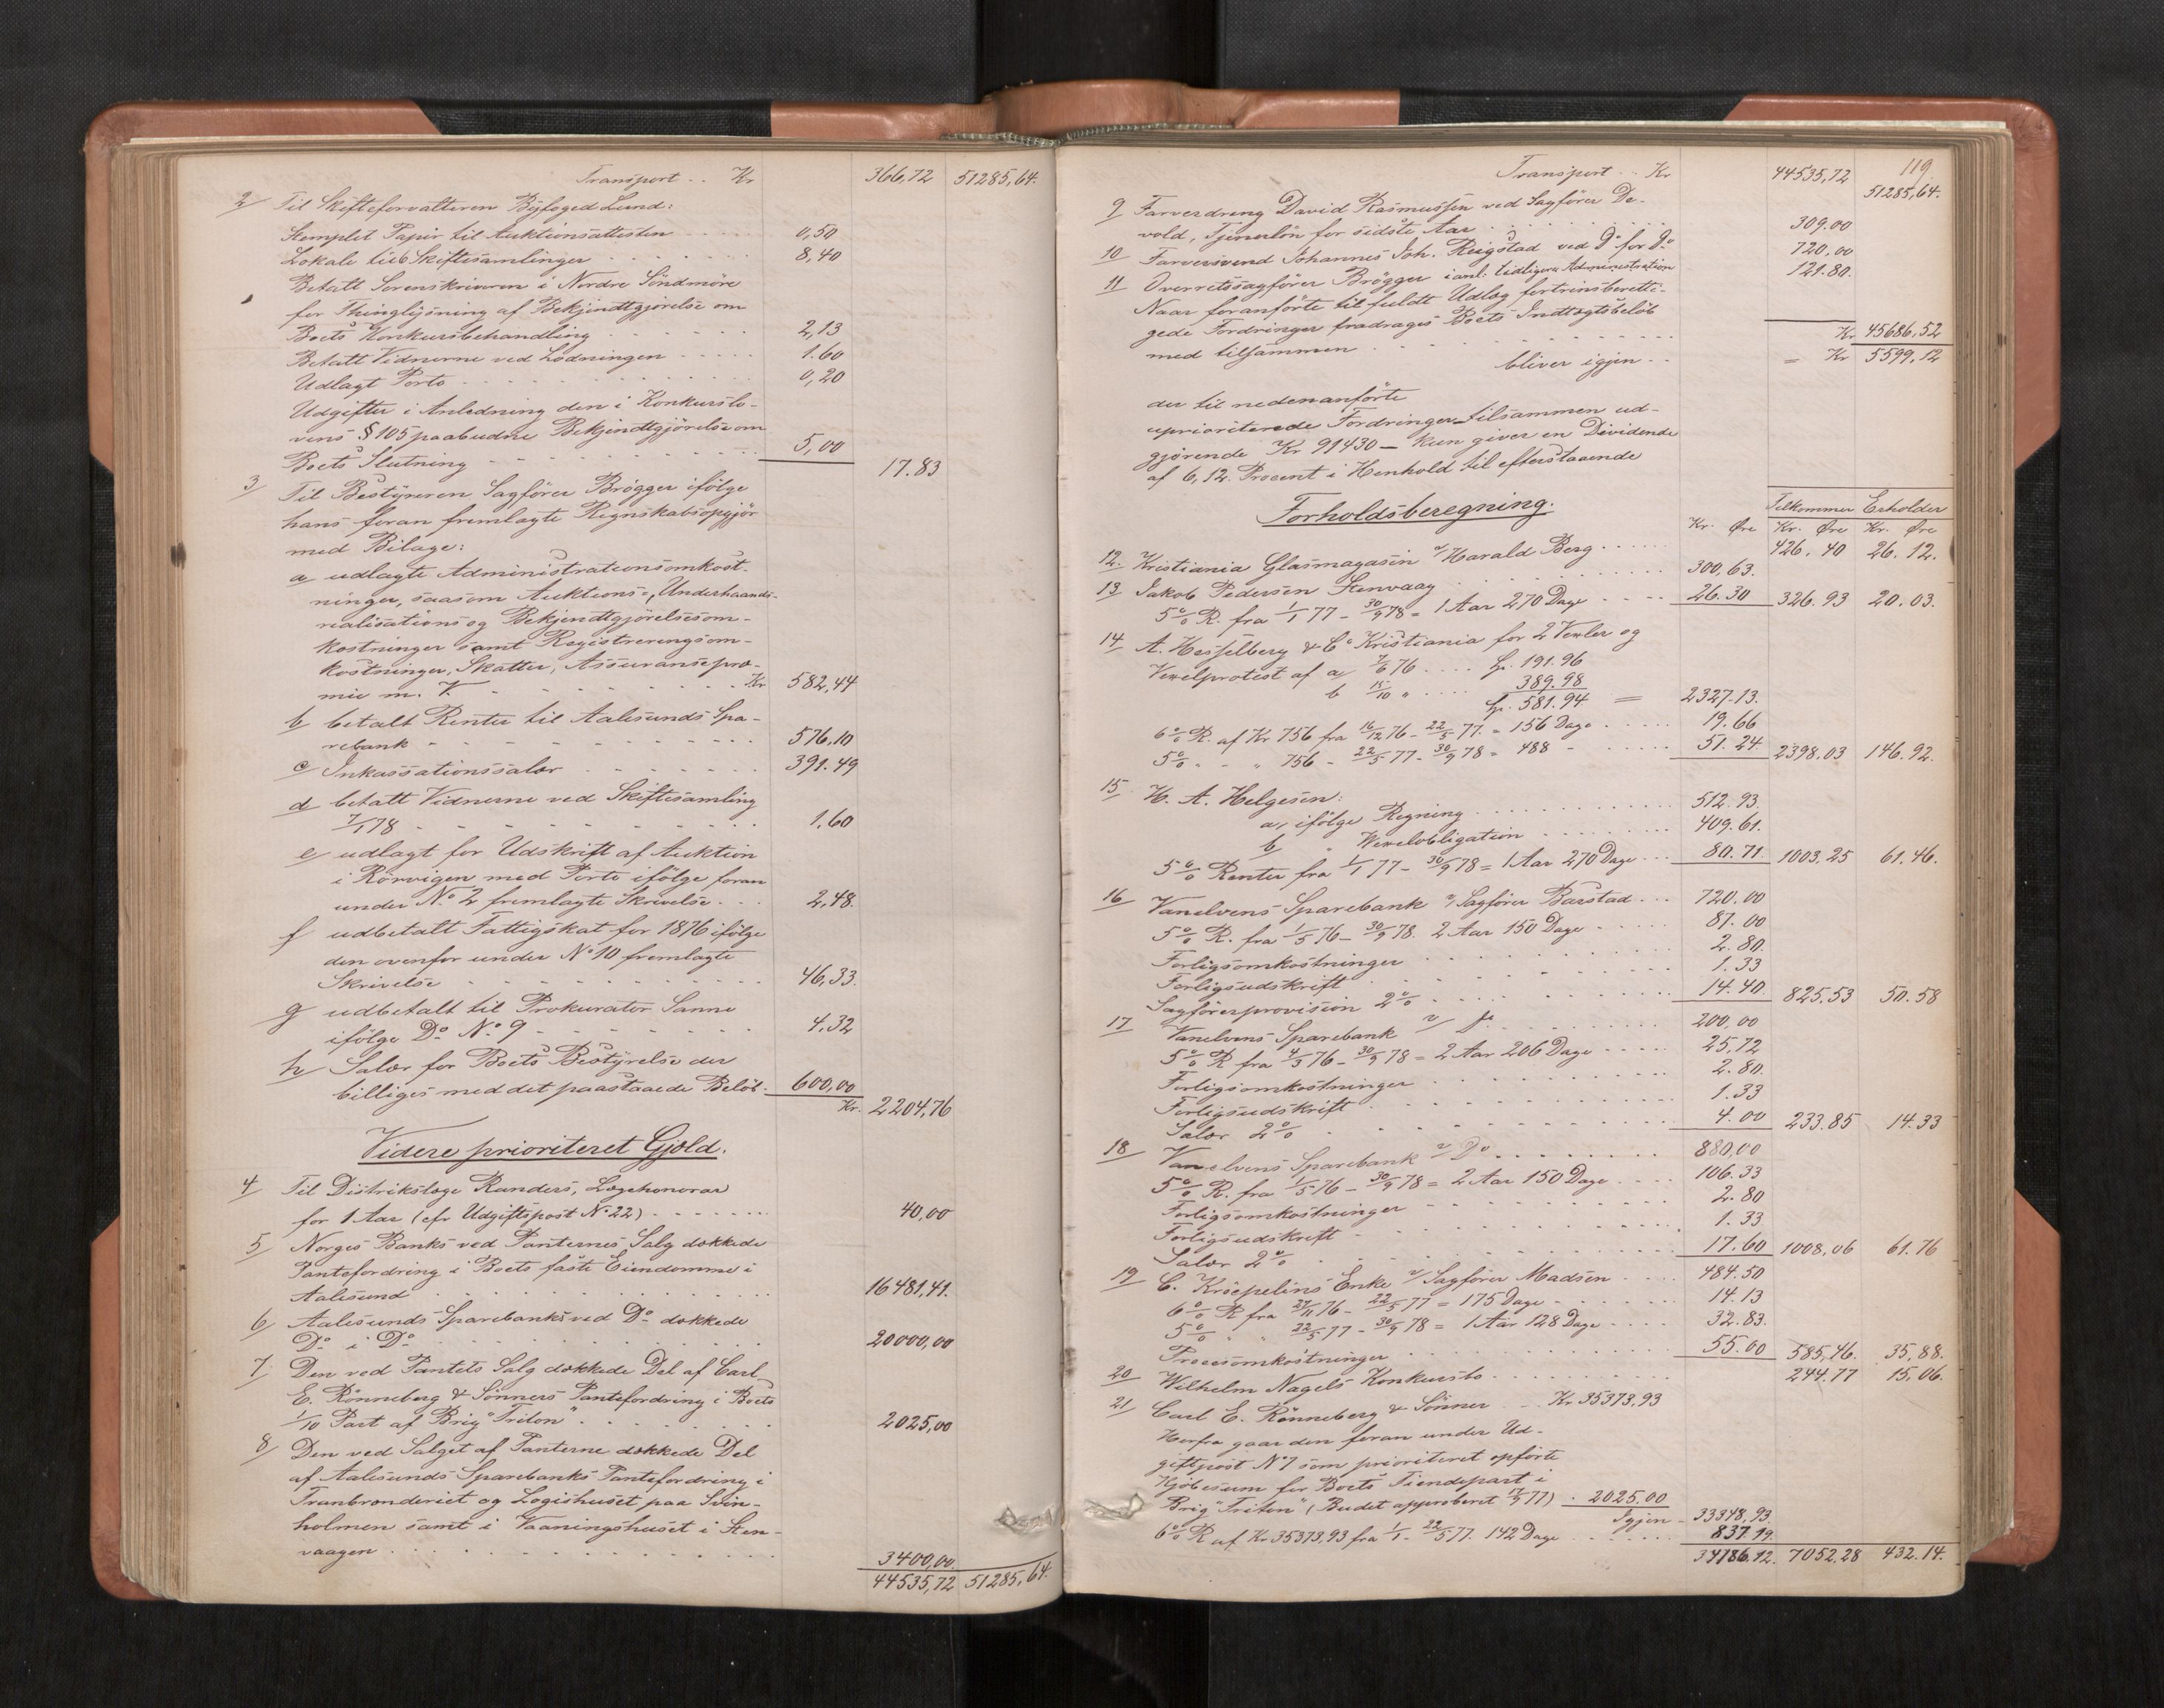 Transport .. Kr 366,72 51285,64.
2/ Til Skifteforvalteren Byfoged Lund:
Stemplet Papir til Auktionsattesten 0,50
Lokale til 6 Skiftesamlinger 8,40
Betalt Sorenskriveren i Nordre Söndmöre
for Thinglysning af Bekjendtgjörelse om
Boets Konkursbehandling 2,13
Betalt Vidnerne ved Lodningen 1.60
Udlagt Porto 0,20
Udgifter i Anledning den i Konkurslo-
vens § 105 paabudne Bekjendtgjörelse om
Boets Slutning 5,00
17.83
3/ Til Bestyreren Sagförer Brögger ifölge
hans foran fremlagte Regnskabsopgjör
med Bilage:
a udlagte Administrationsomkost-
ninger, saasom Auktions-, Underhaands-
realisations og Bekjendtgjörelsesom-
kostninger samt Registreringsom-
kostninger, Skatter, Assurancepræ-
mie m. V. Kr 582,44
b betalt Renter til Aalesunds Spa-
rebank 576,10
c Inkassationssalær 391.49
d betalt Vidnerne ved Skiftesamling
7/1 78 1.60
e udlagt for Udskrift af Auktion
i Rörvigen med Porto ifölge foran
under No 2 fremlagte Skrivelse 2,48.
f udbetalt Fattigskat for 1876 ifölge
den ovenfor under No 10 fremlagte
Skrivelse 46,33.
g udbetalt til Prokurator Sanne
ifölge Do No 9 4,32
h Salær for Boets Bestyrelse der
billiges med det paastaaede Belöb 600,00
Kr. 2204,76
Videre prioriteret Gjæld.
4/ Til Distriktslæge Randers, Lægehonorar
for 1 Aar (cfr Udgiftspost No 22) 40,00
5/ Norges Banks ved Panternes Salg dækkede
Pantefordring i Boets faste Eiendomme i
Aalesund 16481,41.
6/ Aalesunds Sparebanks ved Do dækkede
Do i Do 20000,00
7/ Den ved Pantets Salg dækkede Del af Carl
E. Rönneberg & Sönners Pantefordring i Boets
1/10 Part af Brig "Triton" 2025,00
8/ Den ved Salget af Panterne dækkede Del
af Aalesunds Sparebanks Pantefordring i
Tranbrænderiet og Logishuset paa Svin-
holmen samt i Vaaningshuset i Sten-
vaagen 3400,00.
44535,72 51285,64.
119
Transport .. Kr 44535,72 51285,64.
9 Farverdreng David Rasmussen ved Sagförer De-
vold, Tjenerlön for sidste Aar 309.00
10 Farversvend Johannes Joh. Reigstad ved Do for Do 720,00
11 Overretssagförer Brögger i anl. tidligere Administration 121.80.
Naar foranförte til fuldt Udlæg fortrinsberetti-
gede Fordringer fradrages Boets Indtægtsbelöb
med tilsammen Kr 45686,52
bliver igjen = Kr 5599,12
der til nedenanförte
uprioriterede Fordringer tilsammen ud-
gjörende Kr 91430 — kun giver en Dividende
af 6,12. Procent i Henhold til efterstaaende
Forholdsberegning.
Tilkommer Erholder
Kr. Øre Kr. Øre Kr. Øre
12. Kristiania Glasmagasin v/ Harald Berg 426. 40 26. 12.
13 Jakob Pedersen Stenvaag 300,63.
5% R. fra 1/1 77 - 30/9 78 = 1 Aar 270 Dage 26.30 326.93 20.03.
14 A. Hesselberg & Co Kristiania for 2 Vexler og
Vexelprotest af a 7/6 76 191.96
b 15/10 " 389.98
581.94 = 2327.13.
6% R. af Kr 756 fra 16/12 76 - 22/5 77. = 156 Dage 19.66
5% " - " 756 - 22/5 77 - 30/9 78 = 488 - 51.24 2398.03 146.92.
15 H. A. Helgesen:
a, ifölge Regning 512.93.
b " Vexelobligation 409.61.
5% Renter fra 1/1 77 - 30/9 78 = 1 Aar 270 Dage 80.71 1003.25 61.46.
16 Vanelvens Sparebank v/ Sagförer Barstad 720.00
5% R. fra 1/5 76 - 30/9 78. 2 Aar 150 Dage 87.00
Forligsomkostninger 2.80.
Forligsudskrift 1.33
Sagförerprovision 2% 14.40 825.53 50.58
17 Vanelvens Sparebank v/ 200,00
5% R fra 4/3 76 - 30/9 78 = 2 Aar 206 Dage 25,72
Forligsomkostninger 2.80.
Forligsudskrift 1.33
Salær 2% 4.00 233.85 14.33
18 Vanelvens Sparebank v/ Do 880,00
5% R. fra 1/5 76 - 30/9 78 = 2 Aar 150 Dage 106.33
Forligsomkostninger 2.80
Forligsudskrift 1.33
Salær 2% 17.60 1008,06 61.76
19 C. Kröepelins Enke v/ Sagförer Madsen 484.50
6% R fra 27/11 76 - 22/5 77 = 175 Dage 14.13
5% " " 22/5 77 - 30/9 78 = 1 Aar 128 Dage 32.83.
Procesomkostninger 55.00 585,46. 35,88.
20 Wilhelm Nagels Konkursbo 244.77 15,06.
21 Carl E. Rönneberg & Sönner Kr 35373,93
Herfra gaar den foran under Ud-
giftpost No 7 som prioriteret opförte
Kjöbesum for Boets Tiendepart i
Brig "Triton" (Budet approberet 17/9 77) 2025.00
Igjen 33348,93.
6% R af Kr 35373,93 fra 1/1 - 22/5 77. 142 Dage 837.19.
34186.12. 7052.28 432.14.